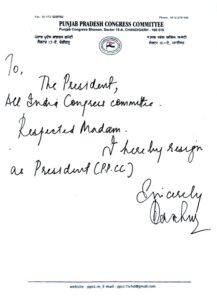 PUNJAB PRADESH CONGRESS COMMITTEE
Punjab Congress Bhawan, Sector 15-A, CHANDIGARH - 160 015
To,
The President,
All India Congress committee.
Respected Madam.
I hereby resign
as President (PPCC)
Sincerely